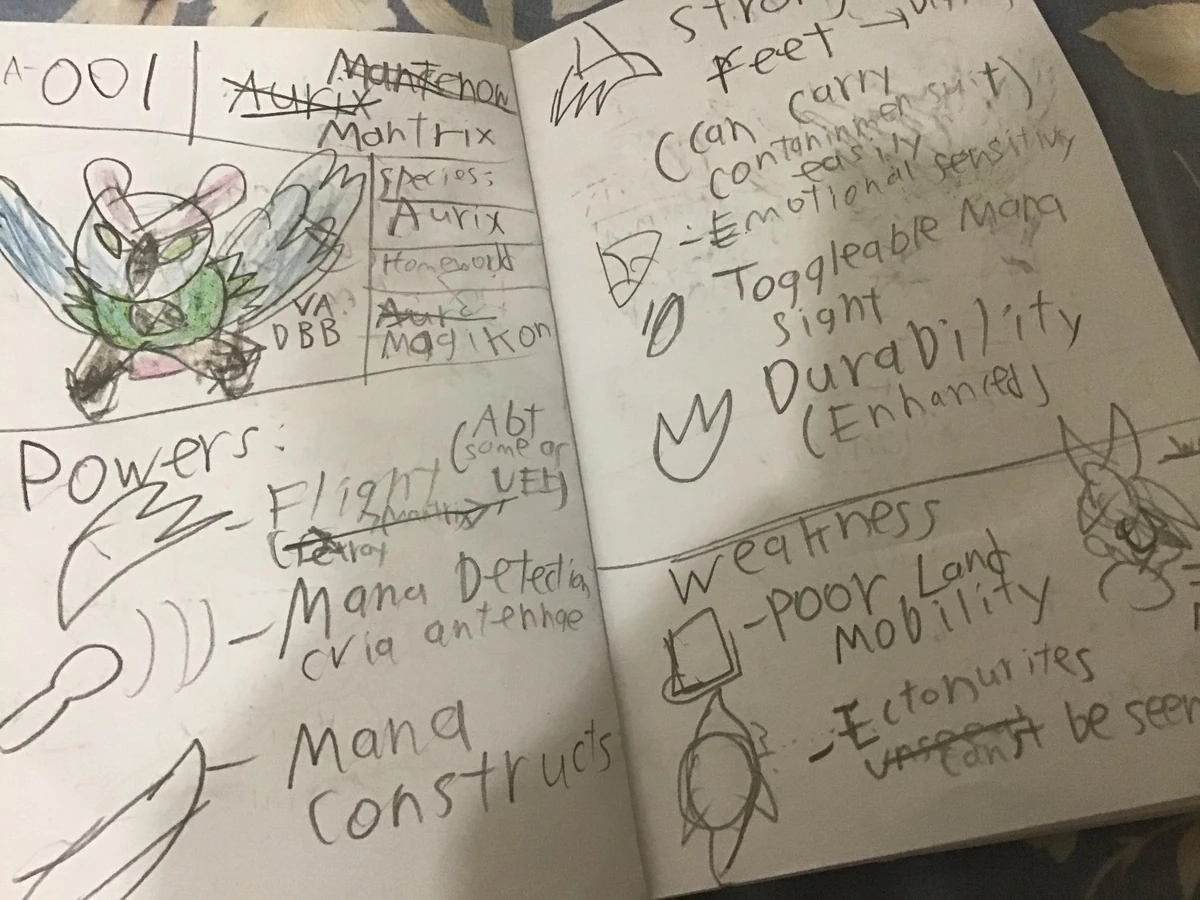 A-001
Aurix
Mantrix
Species:
Aurix
Homeworld
Magikon
VA:
DBB
Powers:
- Flight (Abt
some as
- Mana Detection
(via antennae
- Mana
Constructs
Feet →
(Can carry
containmen suit)
easily
- Emotional sensitivity
Toggleable Mana
Sight
Durability
(Enhanced)
Weakness
- Poor Land
Mobility
- Ectonurites
can't be seen